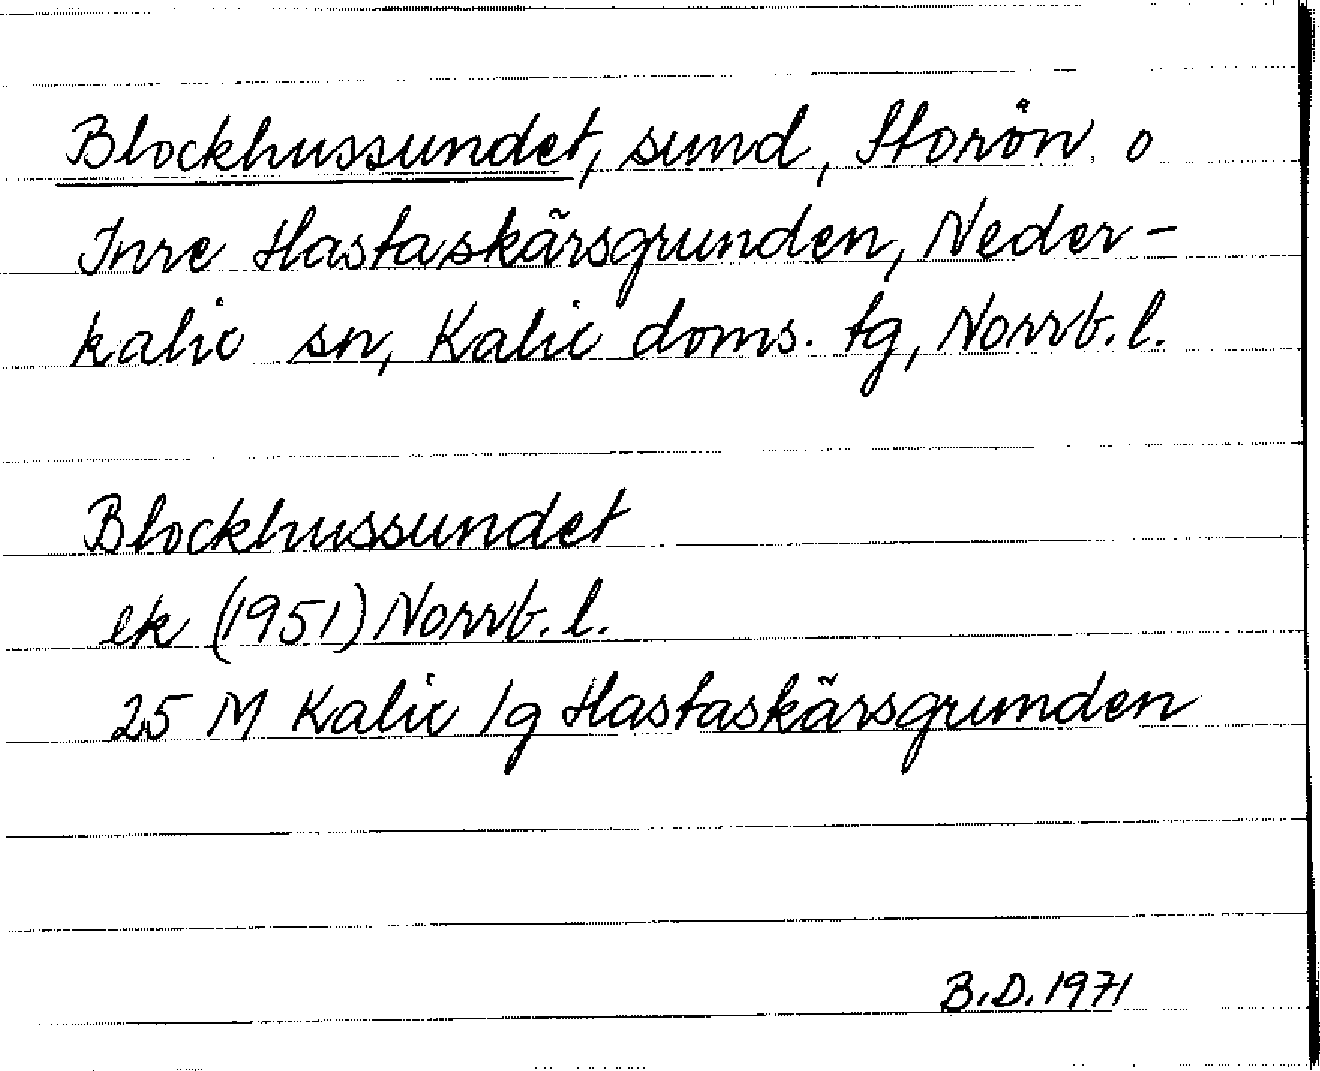 Blockhussundet, sund, Storön o
Inre Hastaskärsgrunden, Neder-
kalix sn, Kalix doms. tg, Norrb. l.
Blockhussundet
ek (1951) Norrb. l.
25 M Kalix /g Hastaskärsgrunden
B.D. 1971